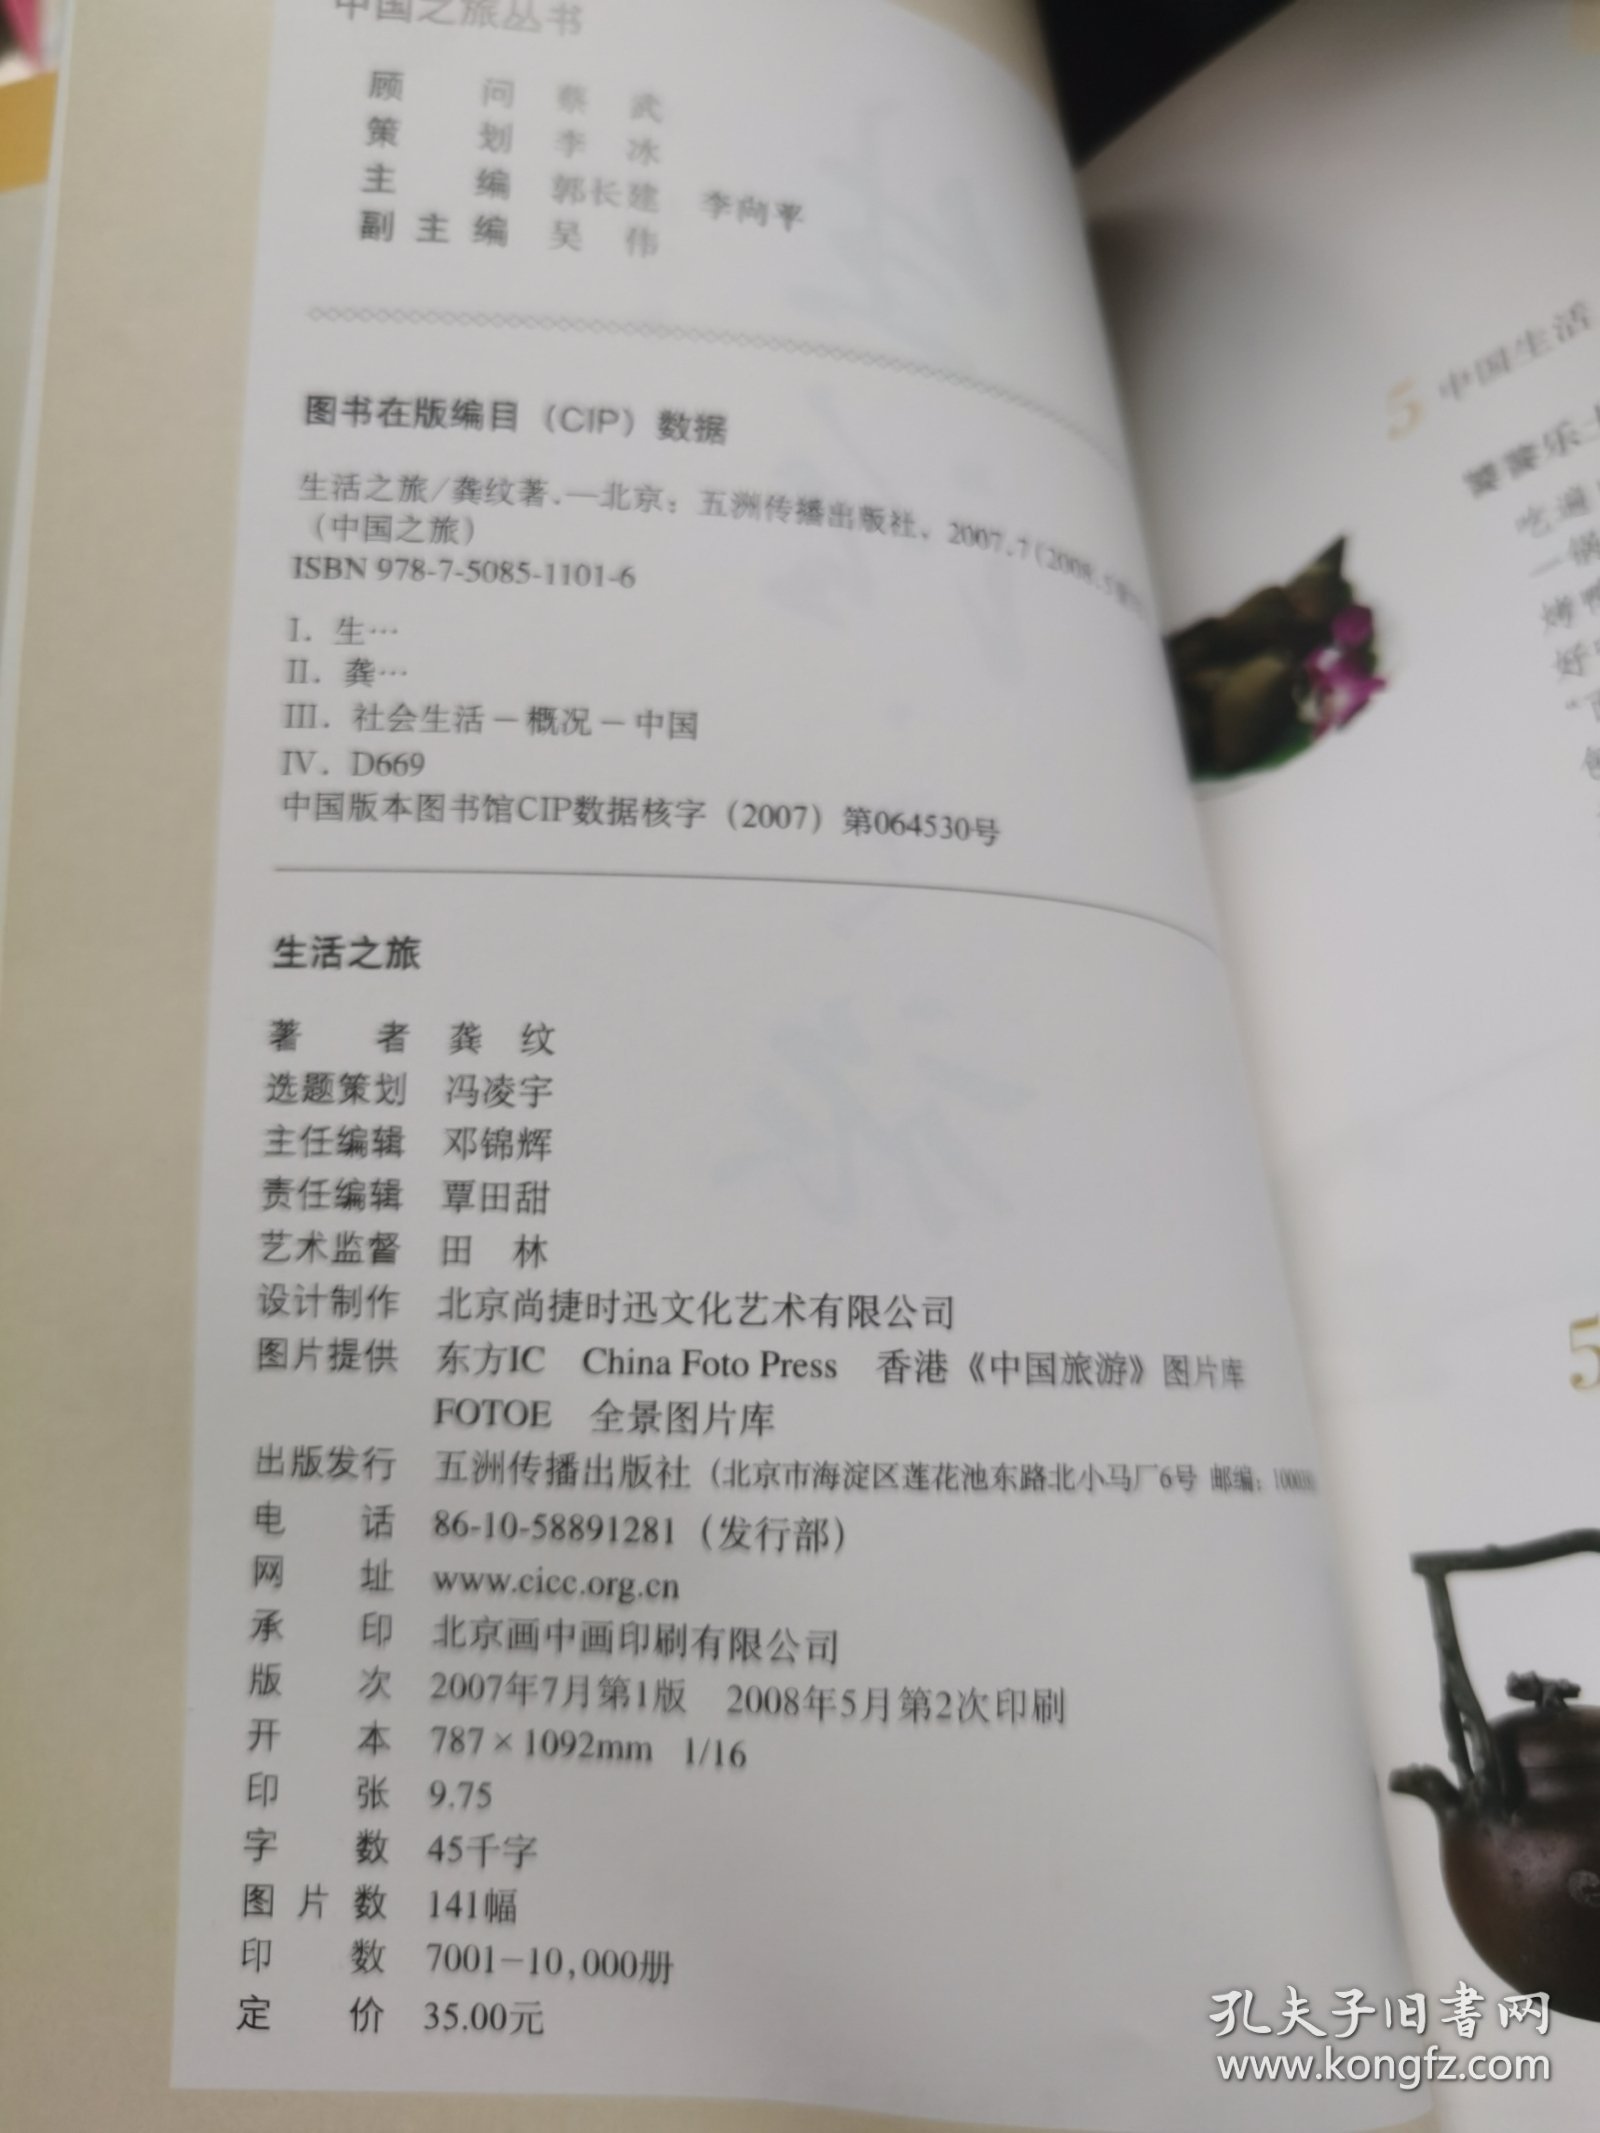 中国之旅丛书
顾　　问　蔡　武
策　　划　李　冰
主　　编　郭长建　李向平
副 主 编　吴　伟
图书在版编目（CIP）数据
生活之旅/龚纹著.—北京：五洲传播出版社，2007.7（2008.5重印）
（中国之旅）
ISBN 978-7-5085-1101-6
I. 生…
II. 龚…
III. 社会生活－概况－中国
IV. D669
中国版本图书馆CIP数据核字（2007）第064530号
生活之旅
著　　者　龚　纹
选题策划　冯凌宇
主任编辑　邓锦辉
责任编辑　覃田甜
艺术监督　田　林
设计制作　北京尚捷时迅文化艺术有限公司
图片提供　东方IC　China Foto Press　香港《中国旅游》图片库
FOTOE　全景图片库
出版发行　五洲传播出版社（北京市海淀区莲花池东路北小马厂6号 邮编：100038
电　　话　86-10-58891281（发行部）
网　　址　www.cicc.org.cn
承　　印　北京画中画印刷有限公司
版　　次　2007年7月第1版　2008年5月第2次印刷
开　　本　787×1092mm 1/16
印　　张　9.75
字　　数　45千字
图 片 数　141幅
印　　数　7001－10,000册
定　　价　35.00元
5 中国生活
饕餮乐土
吃遍
一锅
烤鸭
好
5
孔夫子旧书网
www.kongfz.com